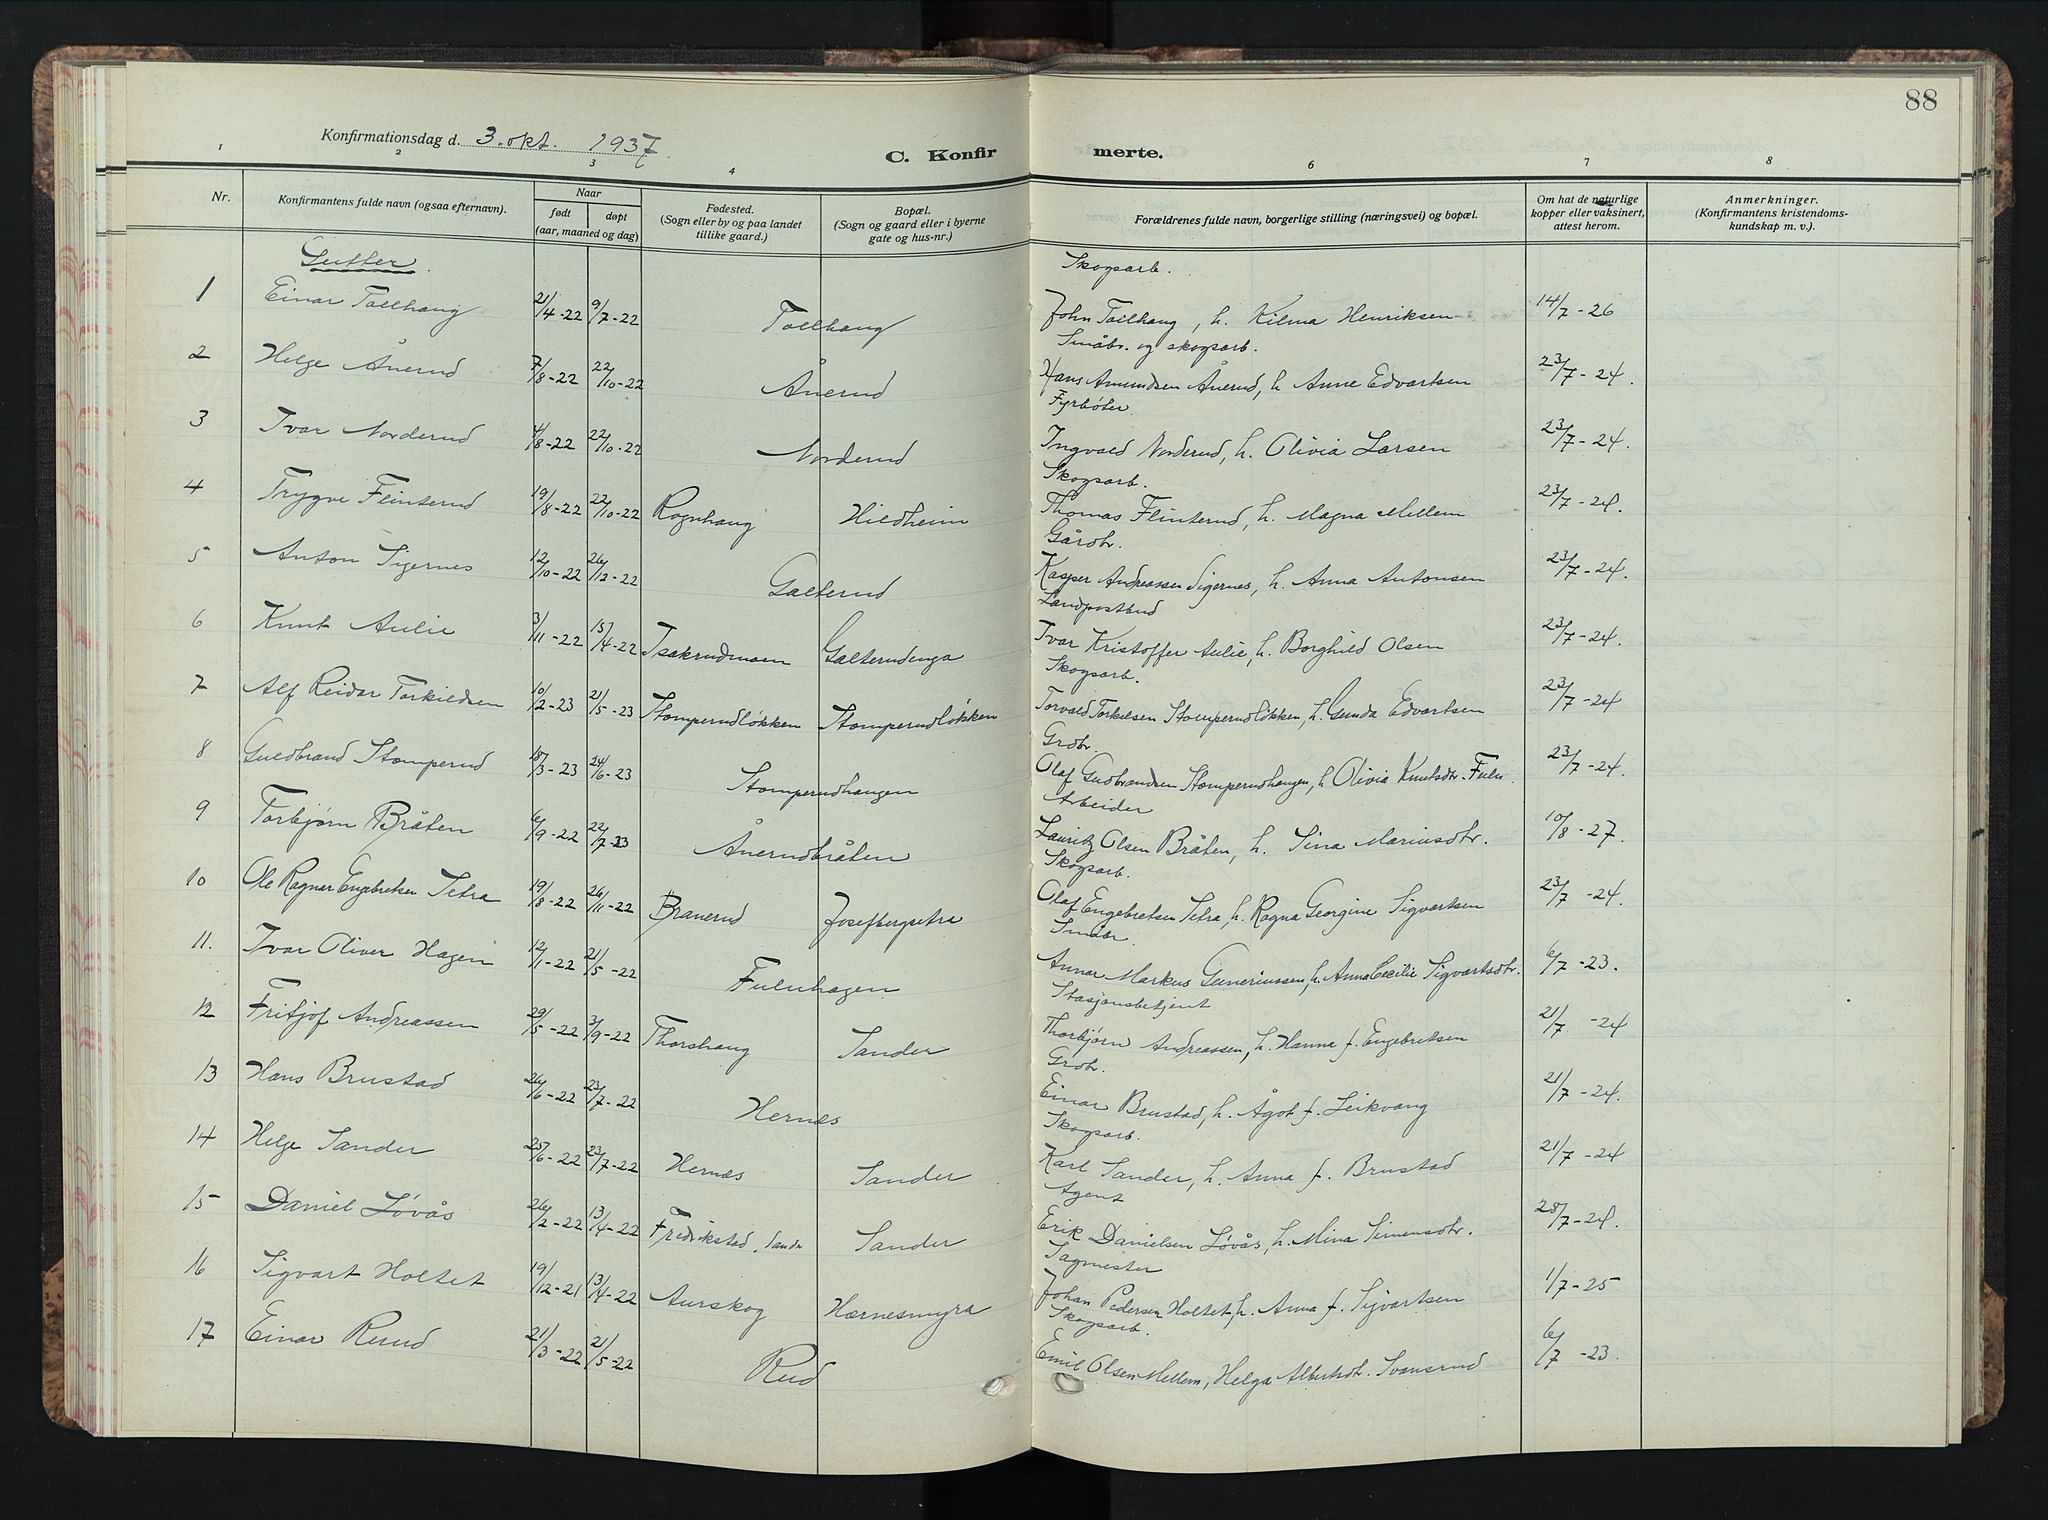 88
Konfirmationsdag d. 3. okt. 1937.
C. Konfirmerte.
1 2 3 4 6 7 8
Nr. Konfirmantens fulde navn (ogsaa efternavn). Naar født døpt (aar, maaned og dag) Fødested. (Sogn eller by og paa landet tillike gaard.) Bopæl. (Sogn og gaard eller i byerne gate og hus-nr.) Forældrenes fulde navn, borgerlige stilling (næringsvei) og bopæl. Om hat de naturlige kopper eller vaksinert, attest herom. Anmerkninger. (Konfirmantens kristendoms-kundskap m. v.).
Gutter.
Skogsarb.
1 Einar Tallhaug 21/4-22 9/7-22 Tallhaug John Tallhaug, h. Kilma Henriksen 14/7-26
Småbr. og skogsarb.
2 Helge Ånerud 7/8-22 22/10-22 Ånerud Hans Amundsen Ånerud, h Anne Edvartsen 23/7-24.
Fyrbøter.
3 Ivar Norderud 4/8-22 22/10-22 Norderud Ingvald Norderud, h. Olivia Larsen 23/7-24.
Skogsarb.
4 Trygve Flinterud 19/8-22 22/10-22 Rognhaug Hildheim Thomas Flinterud, h. Magna Mellem 23/7-24.
Gårdbr.
5 Anton Sigernes 12/10-22 26/12-22 Galterud Kasper Andreassen Sigernes, h. Anna Antonsen 23/7-24.
Landpostbud
6 Knut Aulie 3/11-22 15/4-22 Isakrudmoen Galterudenga Ivar Kristoffer Aulie, h. Borghild Olsen 23/7-24.
Skogsarb.
7 Alf Reidar Torkildsen 10/2-23 21/5-23 Stomperudløkken Stomperudløkken Torvald Torkelsen Stomperudløkken, h. Gunda Edvartsen 23/7-24
Grdbr.
8 Guldbrand Stomperud 18/3-23 24/6-23 Stomperudhaugen Olaf Gudbrandsen Stomperudhaugen, h Olivia Knutsdtr. Fulu 23/7-24.
Arbeider
9 Torbjørn Bråten 6/9-22 22/7-23 Ånerudbråten Lauritz Olsen Bråten, h. Sina Mariusdtr. 10/8-27.
Skogsarb.
10 Ole Ragnar Engebretsen Setra 19/8-22 26/11-22 Branerud Josefbergsetra Olaf Engebretsen Setra, h. Ragna Georgine Sigvartsen 23/7-24.
Småbr.
11. Ivar Oliver Hagen 12/1-22 21/5-22 Fuluhagen Annar Markus Guneriussen, h. Anna Cecilie Sigvartsdtr. 6/7-23.
Stasjonsbetjent
12 Fritjof Andreassen 29/5-22 3/9-22 Thorshaug Sander Thorbjørn Andreassen, h. Hanna f. Engebretsen 21/7-24
Grdbr.
13 Hans Brustad 26/6-22 23/7-22 Hernes Einar Brustad, h. Ågot f. Leikvang 21/7-24.
Skogsarb.
14 Helge Sander 25/6-22 23/7-22 Hernes Sander Karl Sander, h. Anna f. Brustad 21/7-24
Agent
15 Daniel Løvås 26/2-22 13/4-22 Fredrikstad, Sander Sander Erik Danielsen Løvås, h. Mina Simensdtr. 28/7-24.
Sagmester
16 Sigvart Holtet 19/12-21 13/4-22 Aurskog Hernesmyra Johan Pedersen Holtet, h. Anna f. Sigvartsen 1/7-25
Skogsarb.
17 Einar Ruud 21/3-22 21/5-22 Rud Emil Olsen Mellem, Helga Albertsdtr. Svansrud 6/7-23.